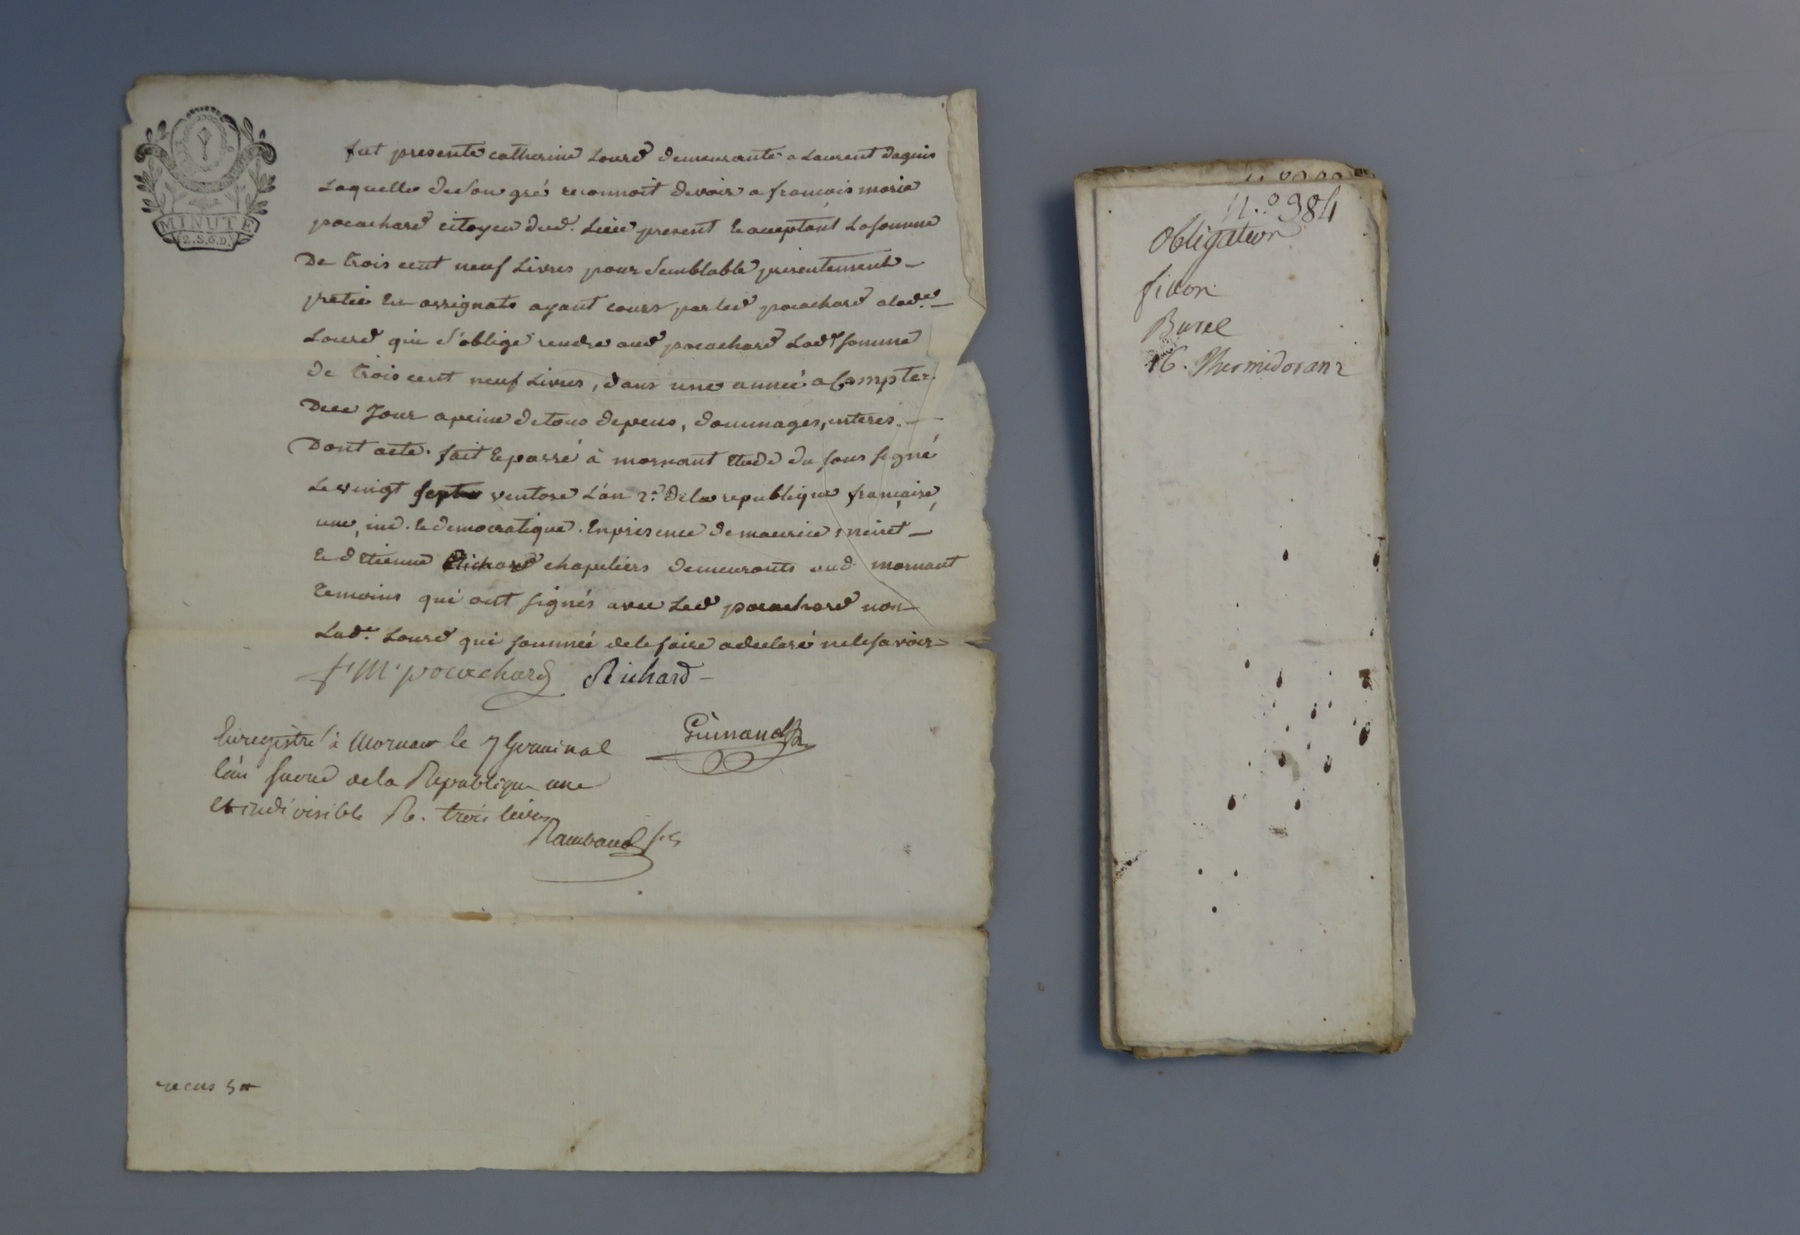 MINUTE
2.S.6.D.
fut presente catherine Lourd demeurante a Laurent dagnis
Laquelle de son gré reconnoit devoir a francois marie
pocachard citoyen dud. Lieu present & acceptant La somme
De trois cent neuf Livres pour Semblable presentement
pretée En assignats ayant cours par led pocachard a lad.e
Lourd qui s'oblige rendre aud pocachard Lad.e somme
de trois cent neuf Livres, dans une année a Compter
De ce Jour a peine de tous depens, dommages, interes.
Dont acte. fait & passé à mornant Etude du sous signé
Le vingt sept ventose L'an 2.e de la republique française
une, ind. & democratique. En presence de maurice
& d'Etienne Richard chapeliers demeurants aud. mornant
temoins qui ont signés avec Led pocachard non
Lad.e Lourd qui sommée de le faire a declaré ne le savoir
f. M. pocachard Richard
Guinand
Enregistré à Mornant le 7 Germinal
l'an second de la Republique une
et indivisible R. trois livres
Rambaud
recus
N.o 984
Obligation
Burel
16. Thermidor an 2